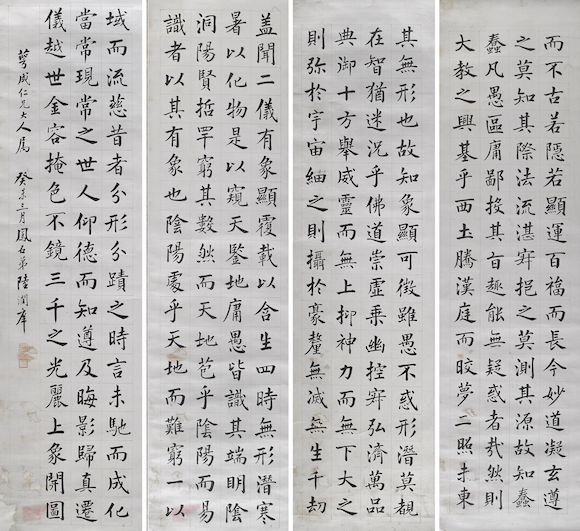 蓋聞二儀有象顯覆載以含生四時無形潛寒
暑以化物是以窺天鑒地庸愚皆識其端明陰
洞陽賢哲罕窮其數然而天地苞乎陰陽而易
識者以其有象也陰陽處乎天地而難窮一以
其無形也故知象顯可徵雖愚不惑形潛莫覩
在智猶迷況乎佛道崇虛乘幽控寂弘濟萬品
典御十方舉威靈而無上抑神力而無下大之
則弥於宇宙細之則攝於豪釐無滅無生千劫
而不古若隱若顯運百福而長今妙道凝玄遵
之莫知其際法流湛寂挹之莫測其源故知蠢
蠢凡愚區庸鄙投其旨趣能無疑惑者哉然則
大教之興基乎西土騰漢庭而皎夢二照才東
域而流慈昔者分形分蹟之時言未馳而成化
當常現常之世人仰德而知遵及晦影歸真遷
儀越世金容掩色不鏡三千之光麗上象開圖
萼成仁兄大人属 癸未三月鳳石弟陸潤庠